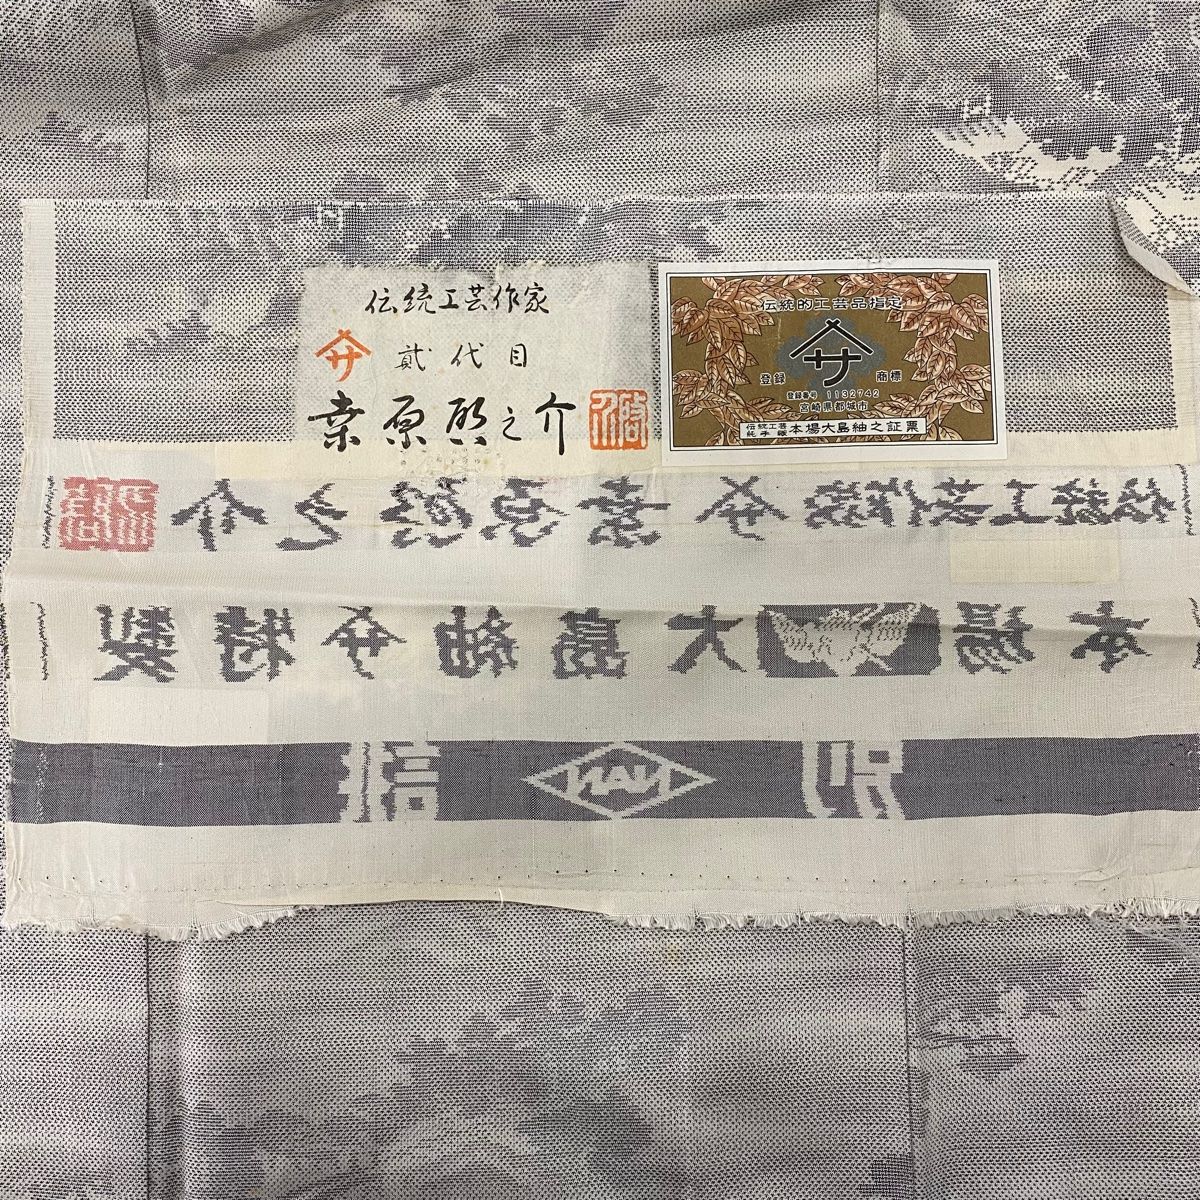 伝統工芸作家
サ 貳代目
桒原啓之介
伝統的工芸品指定
サ
登録 商標
登録番号 1132742
宮崎県都城市
伝統工芸
純手織 本場大島紬之証票
伝統工芸作家 サ 桒原啓之介
本場大島紬サ特製